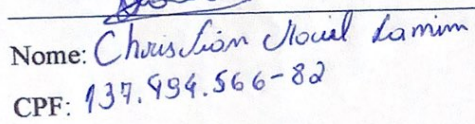 Nome: Christian Maciel Lamim
CPF: 137.994.566-82